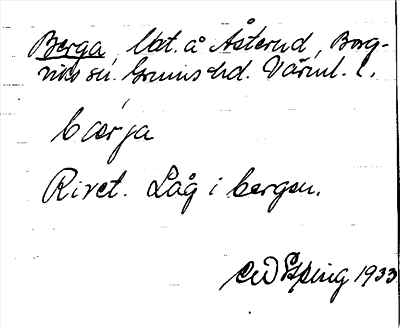 Berga, lht. å Åsterud, Borg-
viks sn. Grums hd. Värml. l.
bærja
Rivet. Låg i bergen.
Esping 1933